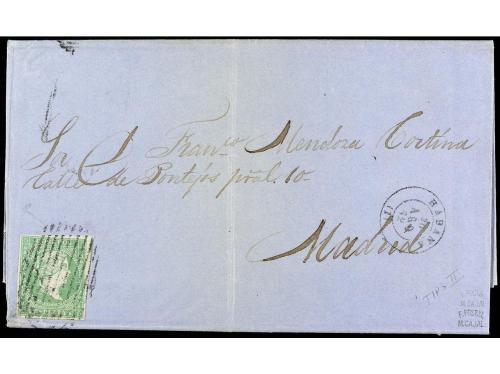 Sr. D. Fran.co Mendoza Cortina
Calle de Pontejos pral. 10
Madrid
HABANA
AGO
TIPO II
M.CAJAL
M.CAJAL